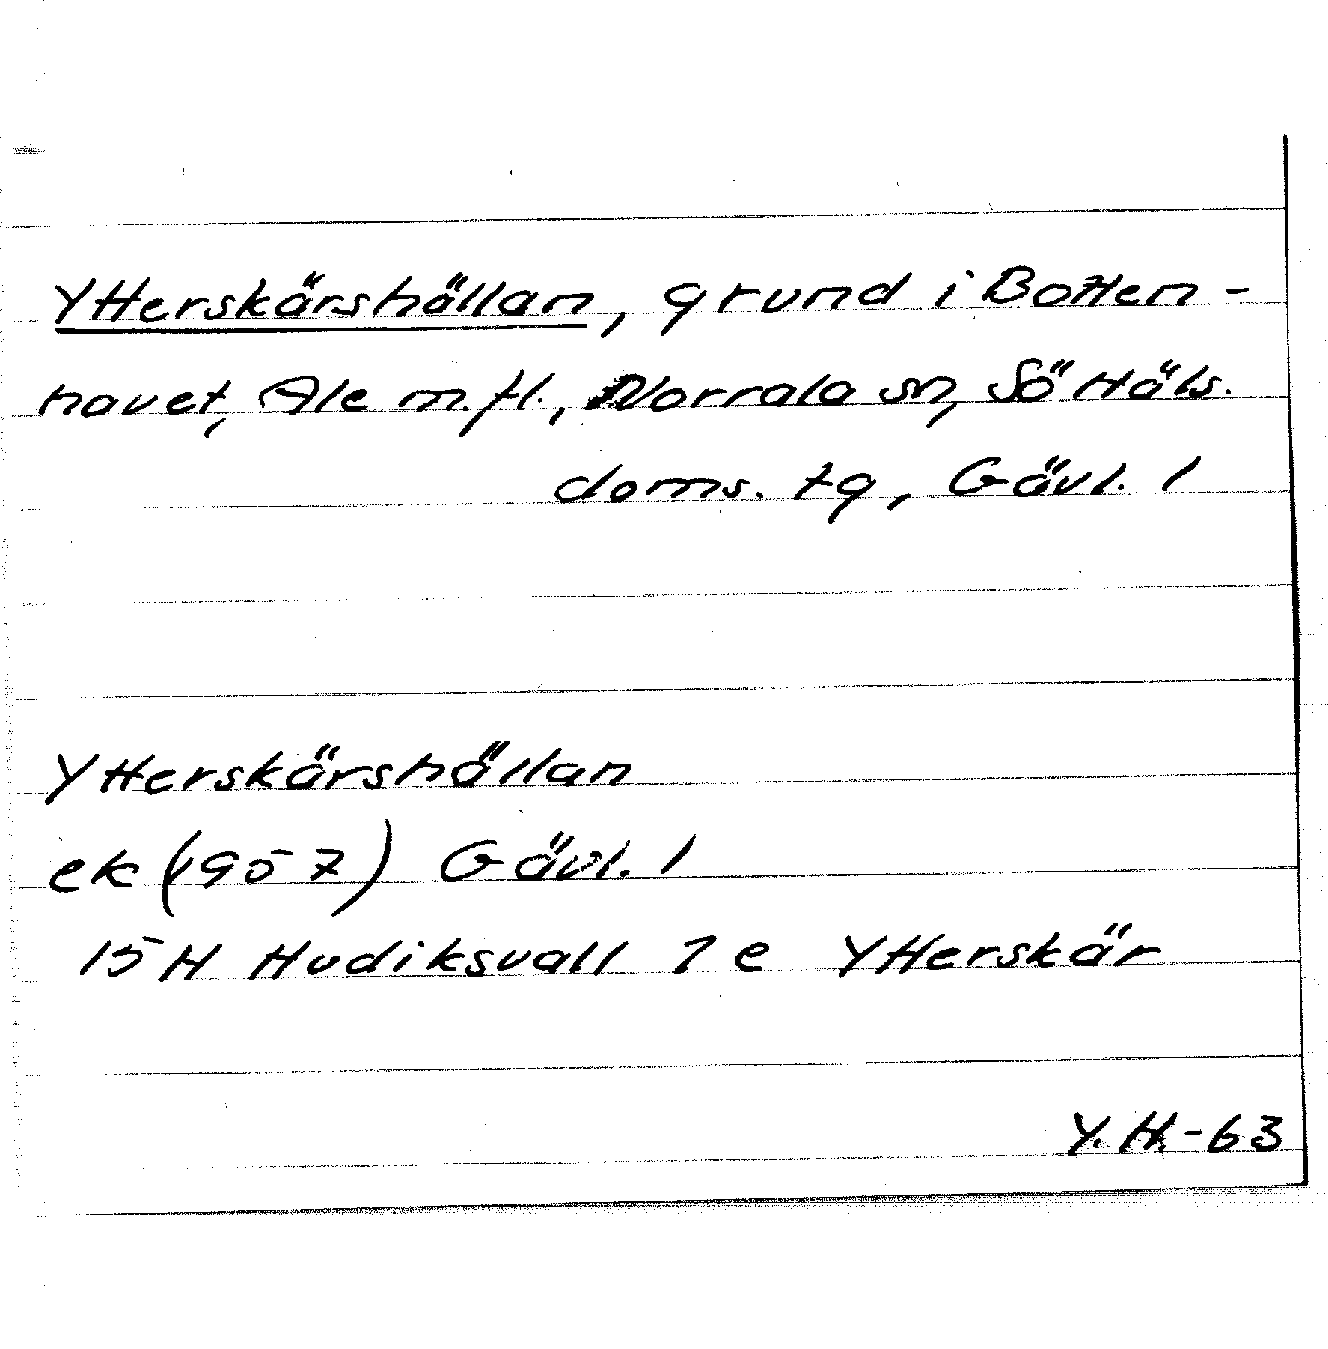 Ytterskärshällan, grund i Botten-
havet, Ale m.fl., Norrala sn, Sö Häls.
doms. tg, Gävl. l
Ytterskärshällan
ek (1957) Gävl. l
15H Hudiksvall 7 e Ytterskär
Y. H.-63